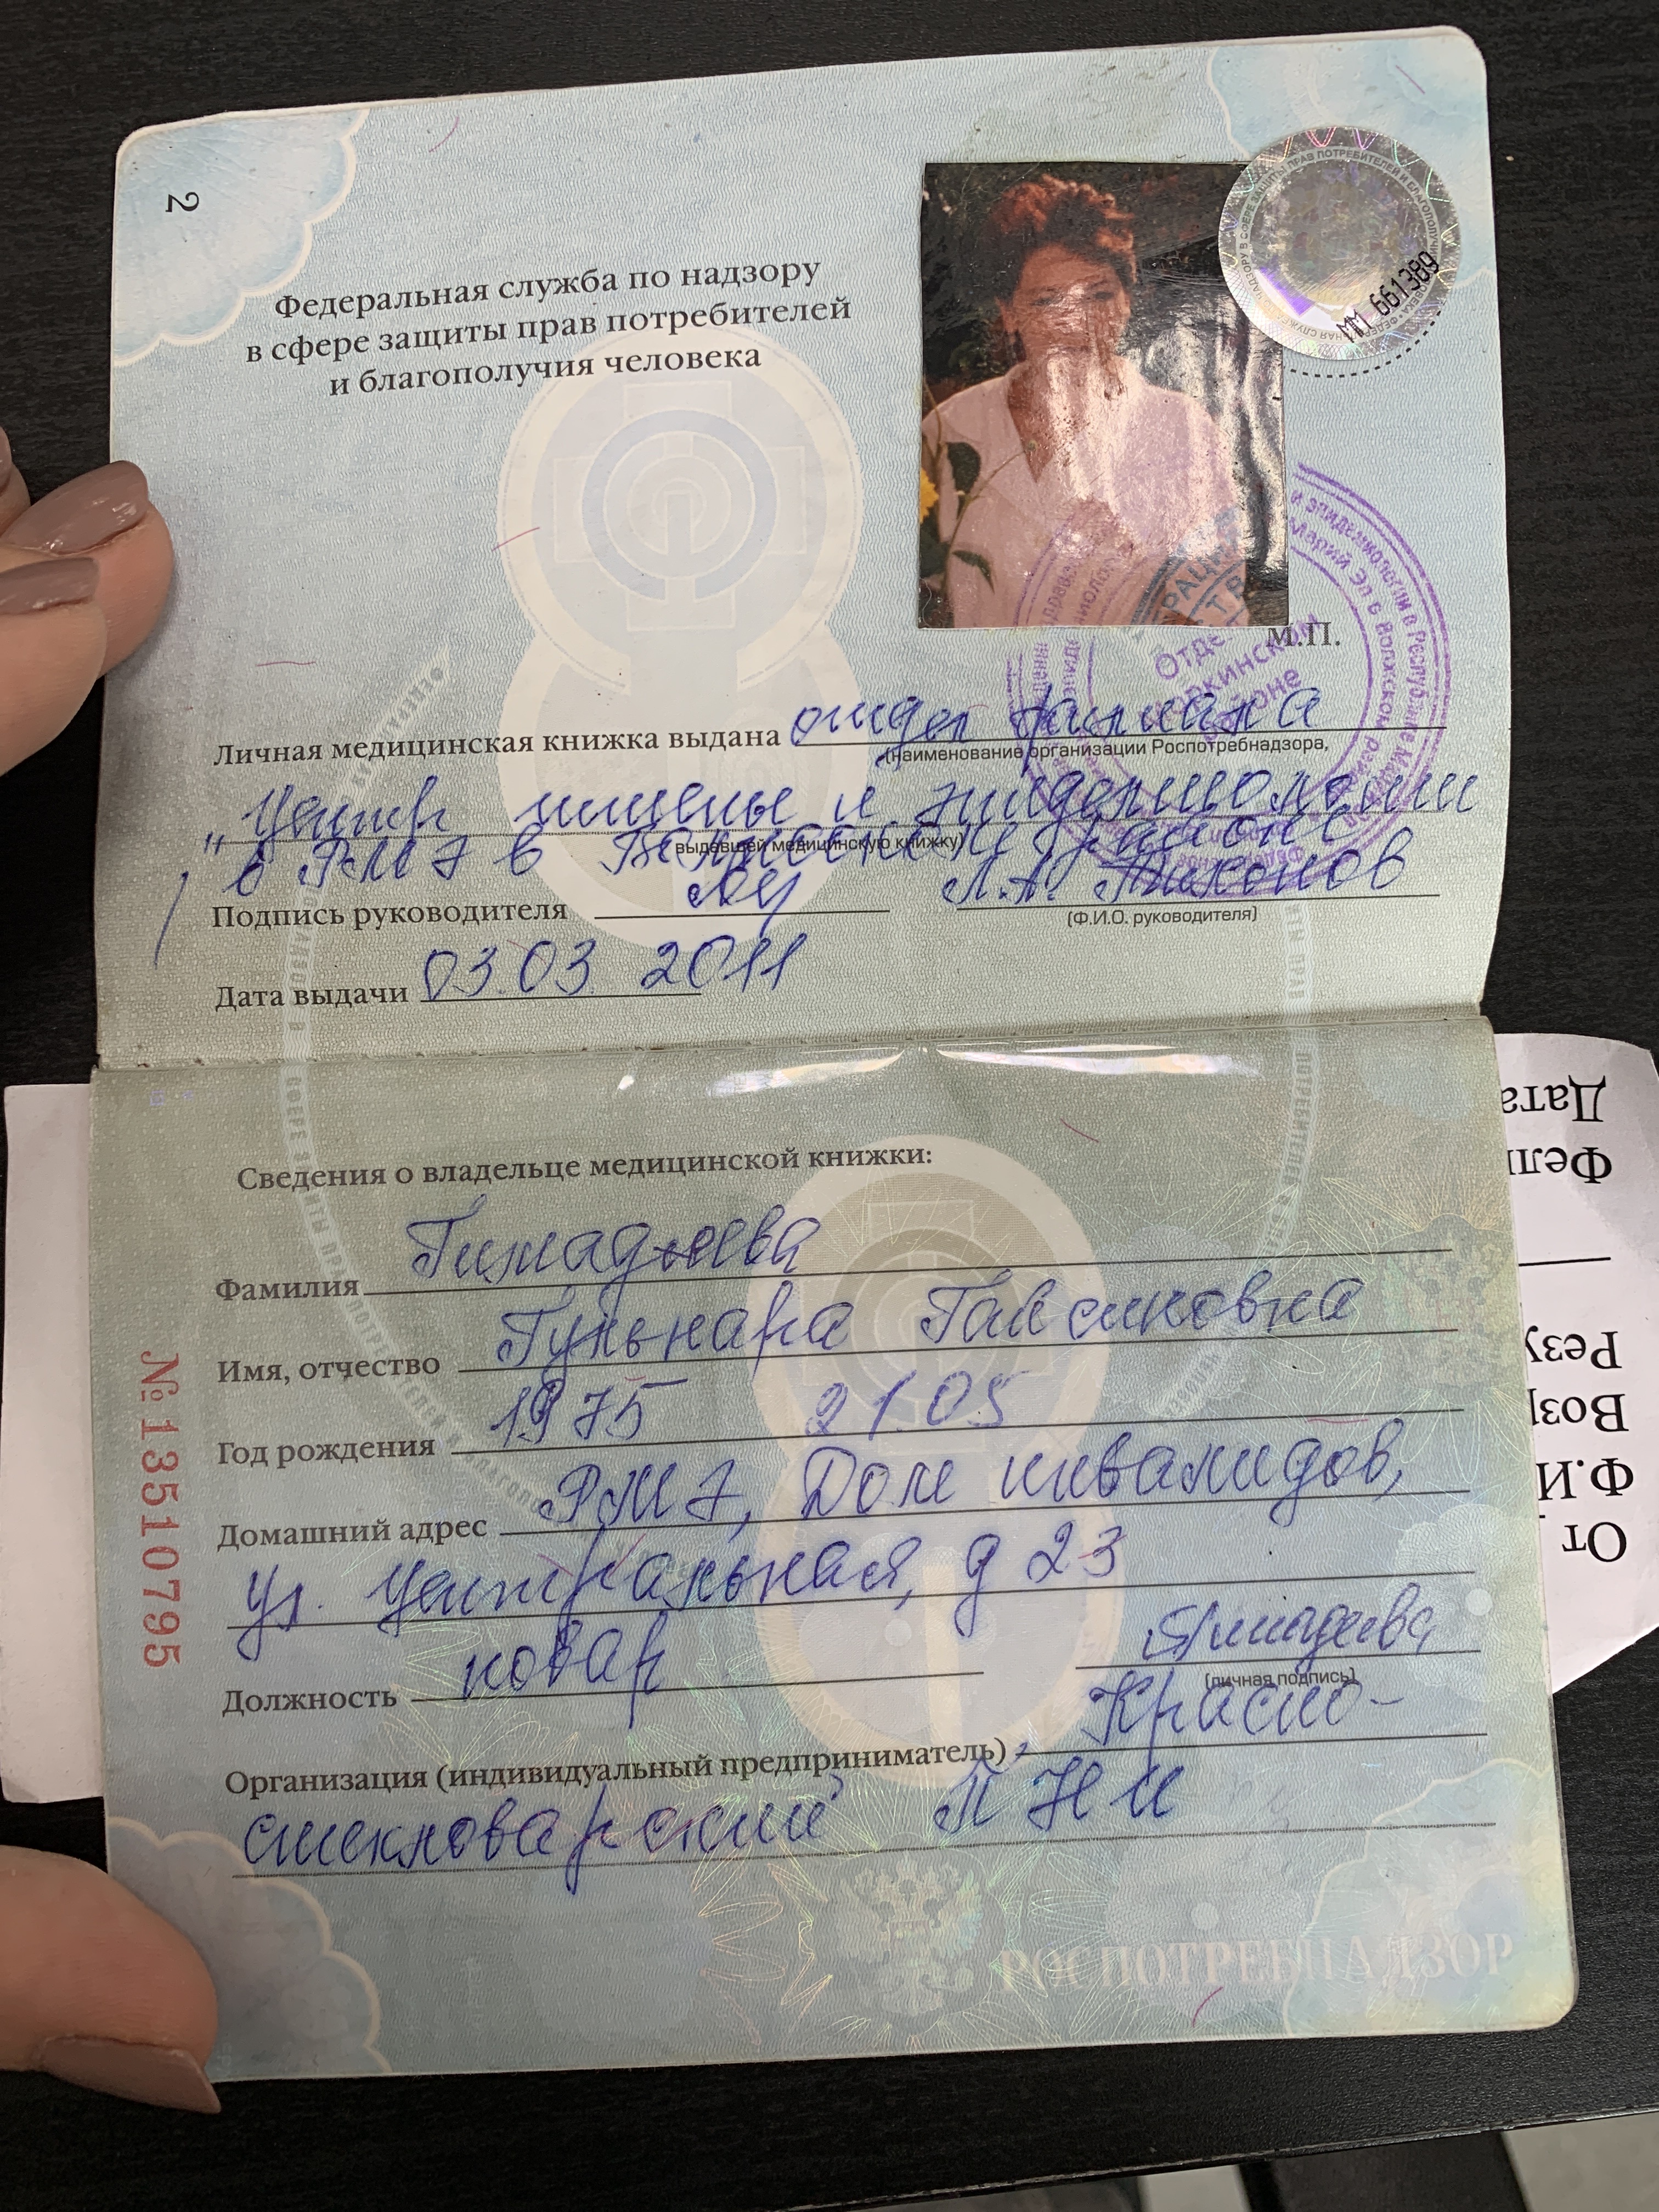 2
Федеральная служба по надзору
в сфере защиты прав потребителей
и благополучия человека
ММ 661389
М.П.
Личная медицинская книжка выдана отдел филиала
(наименование организации Роспотребнадзора,
"Центр гигиены и эпидемиологии
выдавшей медицинскую книжку)
в РМЭ в Волжском районе
Подпись руководителя Л.А. Тихонов
(Ф.И.О. руководителя)
Дата выдачи 03.03.2011
Сведения о владельце медицинской книжки:
Фамилия Гимадиева
Имя, отчество Гульнара
Год рождения 1975 21.05
Домашний адрес РМЭ, Дом инвалидов,
ул. Центральная, д 23
Должность повар Гимадиева
(личная подпись)
Организация (индивидуальный предприниматель) Красно-
стекловарский ПНИ
РОСПОТРЕБНАДЗОР
№ 13510795
Дата
Резу
Возр
Ф.И
От